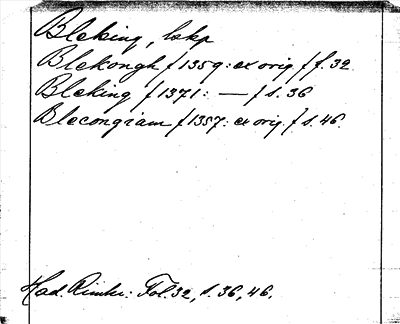 Bleking, lskp
Blekongh f 1359: ex orig. f f. 32.
Bleking f 1371: — f s. 36
Blecongiam f 1357: ex orig. f s. 46.
Had. Rimkr: Fol. 32, s. 36, 46.